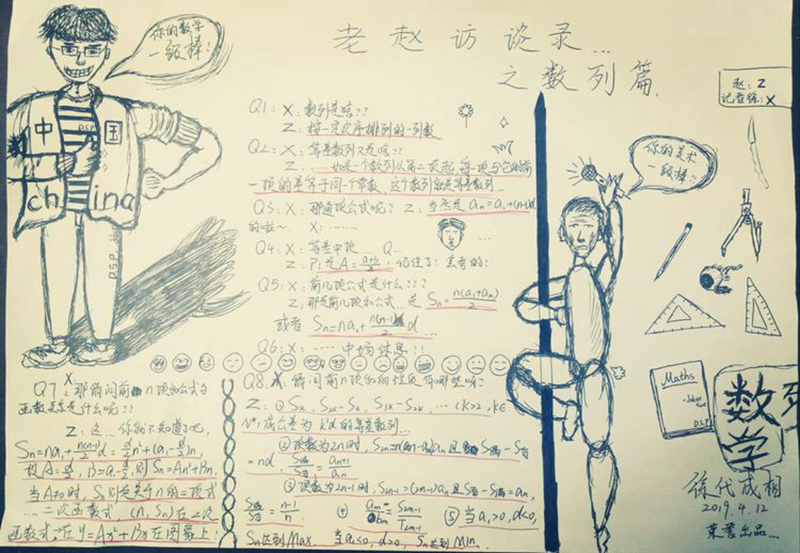 你的数学
一级棒!
老赵访谈录...
之数列篇.
赵:Z
记者徐:X
中 国
china
D.S.P
D.S.P
Q1: X:数列是啥??
Z:按一定次序排列的一列数
Q2: X:等差数列又是啥??
Z:……如果一个数列从第二项起,每一项与它的前
一项的差等于同一个常数,这个数列就是等差数列…
Q3: X:那通项公式呢? Z:当然是 an=a1+(n-1)d
的啦~ X:……
Q4: X:等差中项…Q…
Z:P!是A=(a+b)/2!记住了!
Q5: X:前几项公式是什么???
Z:那是前几项和公式…是 Sn=n(a1+an)/2
或者 Sn=na1+n(n-1)/2 d
Q6: X:……中场休息!!
你的美术
一级棒!
Maths
D.S.P
数列
学
Q7: X:那请问前n项和公式与
函数关系是什么呢??
Z:这…你就不知道了吧,
Sn=na1+n(n-1)/2 d=d/2 n²+(a1-d/2)n
设A=d/2,B=a1-d/2,则Sn=An²+Bn.
当A≠0时,Sn则是关于n的二次式
…二次函数式,(n,Sn)在二次
函数式,在y=Ax²+Bx在图象上!
Q8: X:请问前n项和的性质有哪些呢?
Z:①SK,S2K-SK,S3K-S2K,…(K>2,K∈
N*)成公差为k²d的等差数列…
②项数为2n时,
=nd, S偶/S奇=an+1/an
③项数为2n-1时,S2n-1=(2n-1)an且S奇-S偶=an,
S偶/S奇=n-1/n ④ an/bn=S2n-1/T2n-1 ⑤当a1>0,d<0,
Sn达到Max. 当a1<0,d>0,Sn达到Min.
徐代成相
2019.4.12
出品…